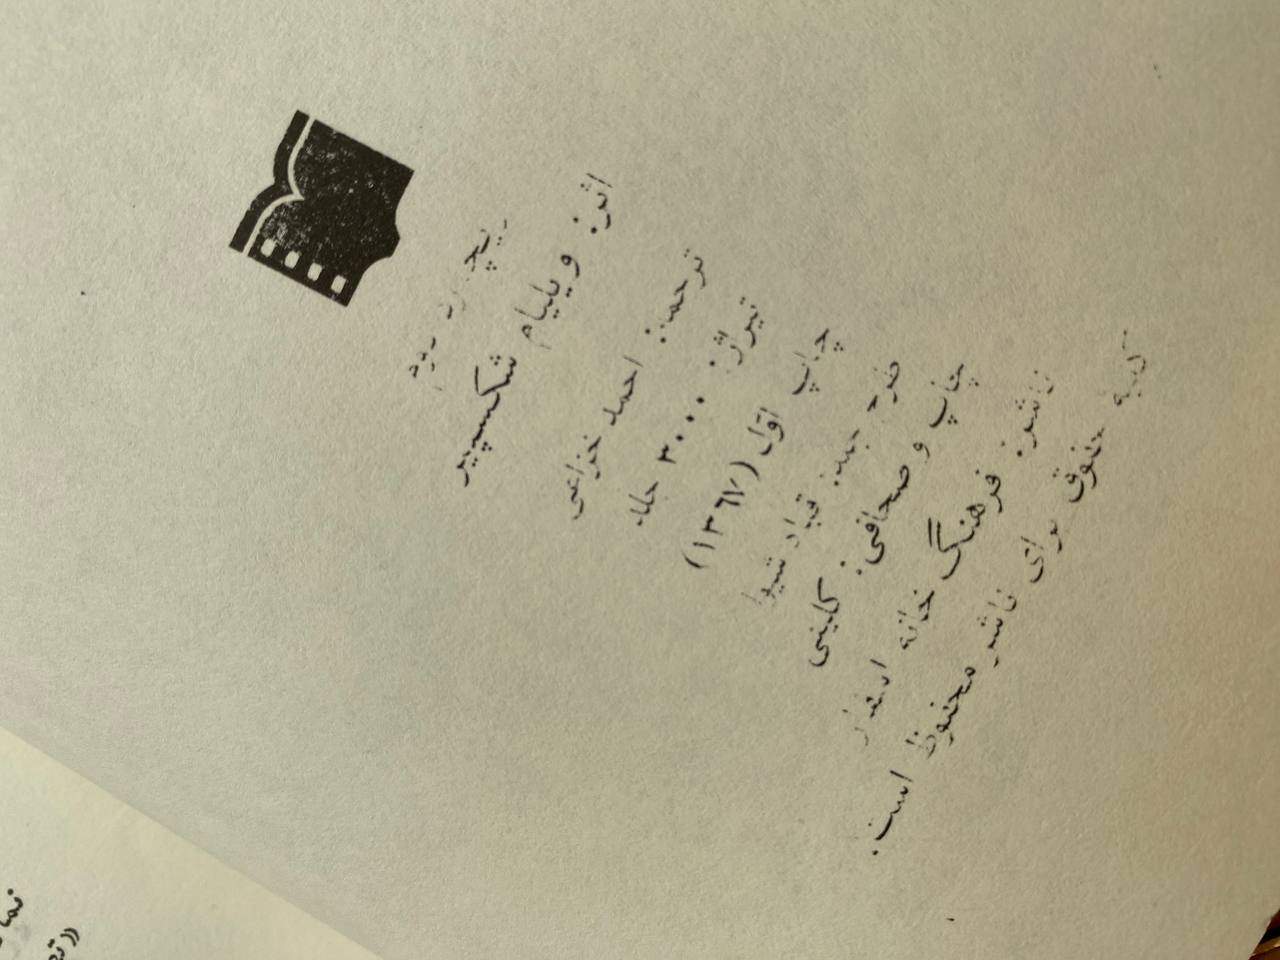 ریچارد دوم
اثر: ویلیام شکسپیر
ترجمه: احمد خزاعی
تیراژ: ۳۰۰۰ جلد
چاپ اوّل (۱۳۶۷)
طرح جلد: قباد شیوا
چاپ و صحافی: کلینی
ناشر: فرهنگ خانه اسفار
کلیه حقوق برای ناشر محفوظ است.